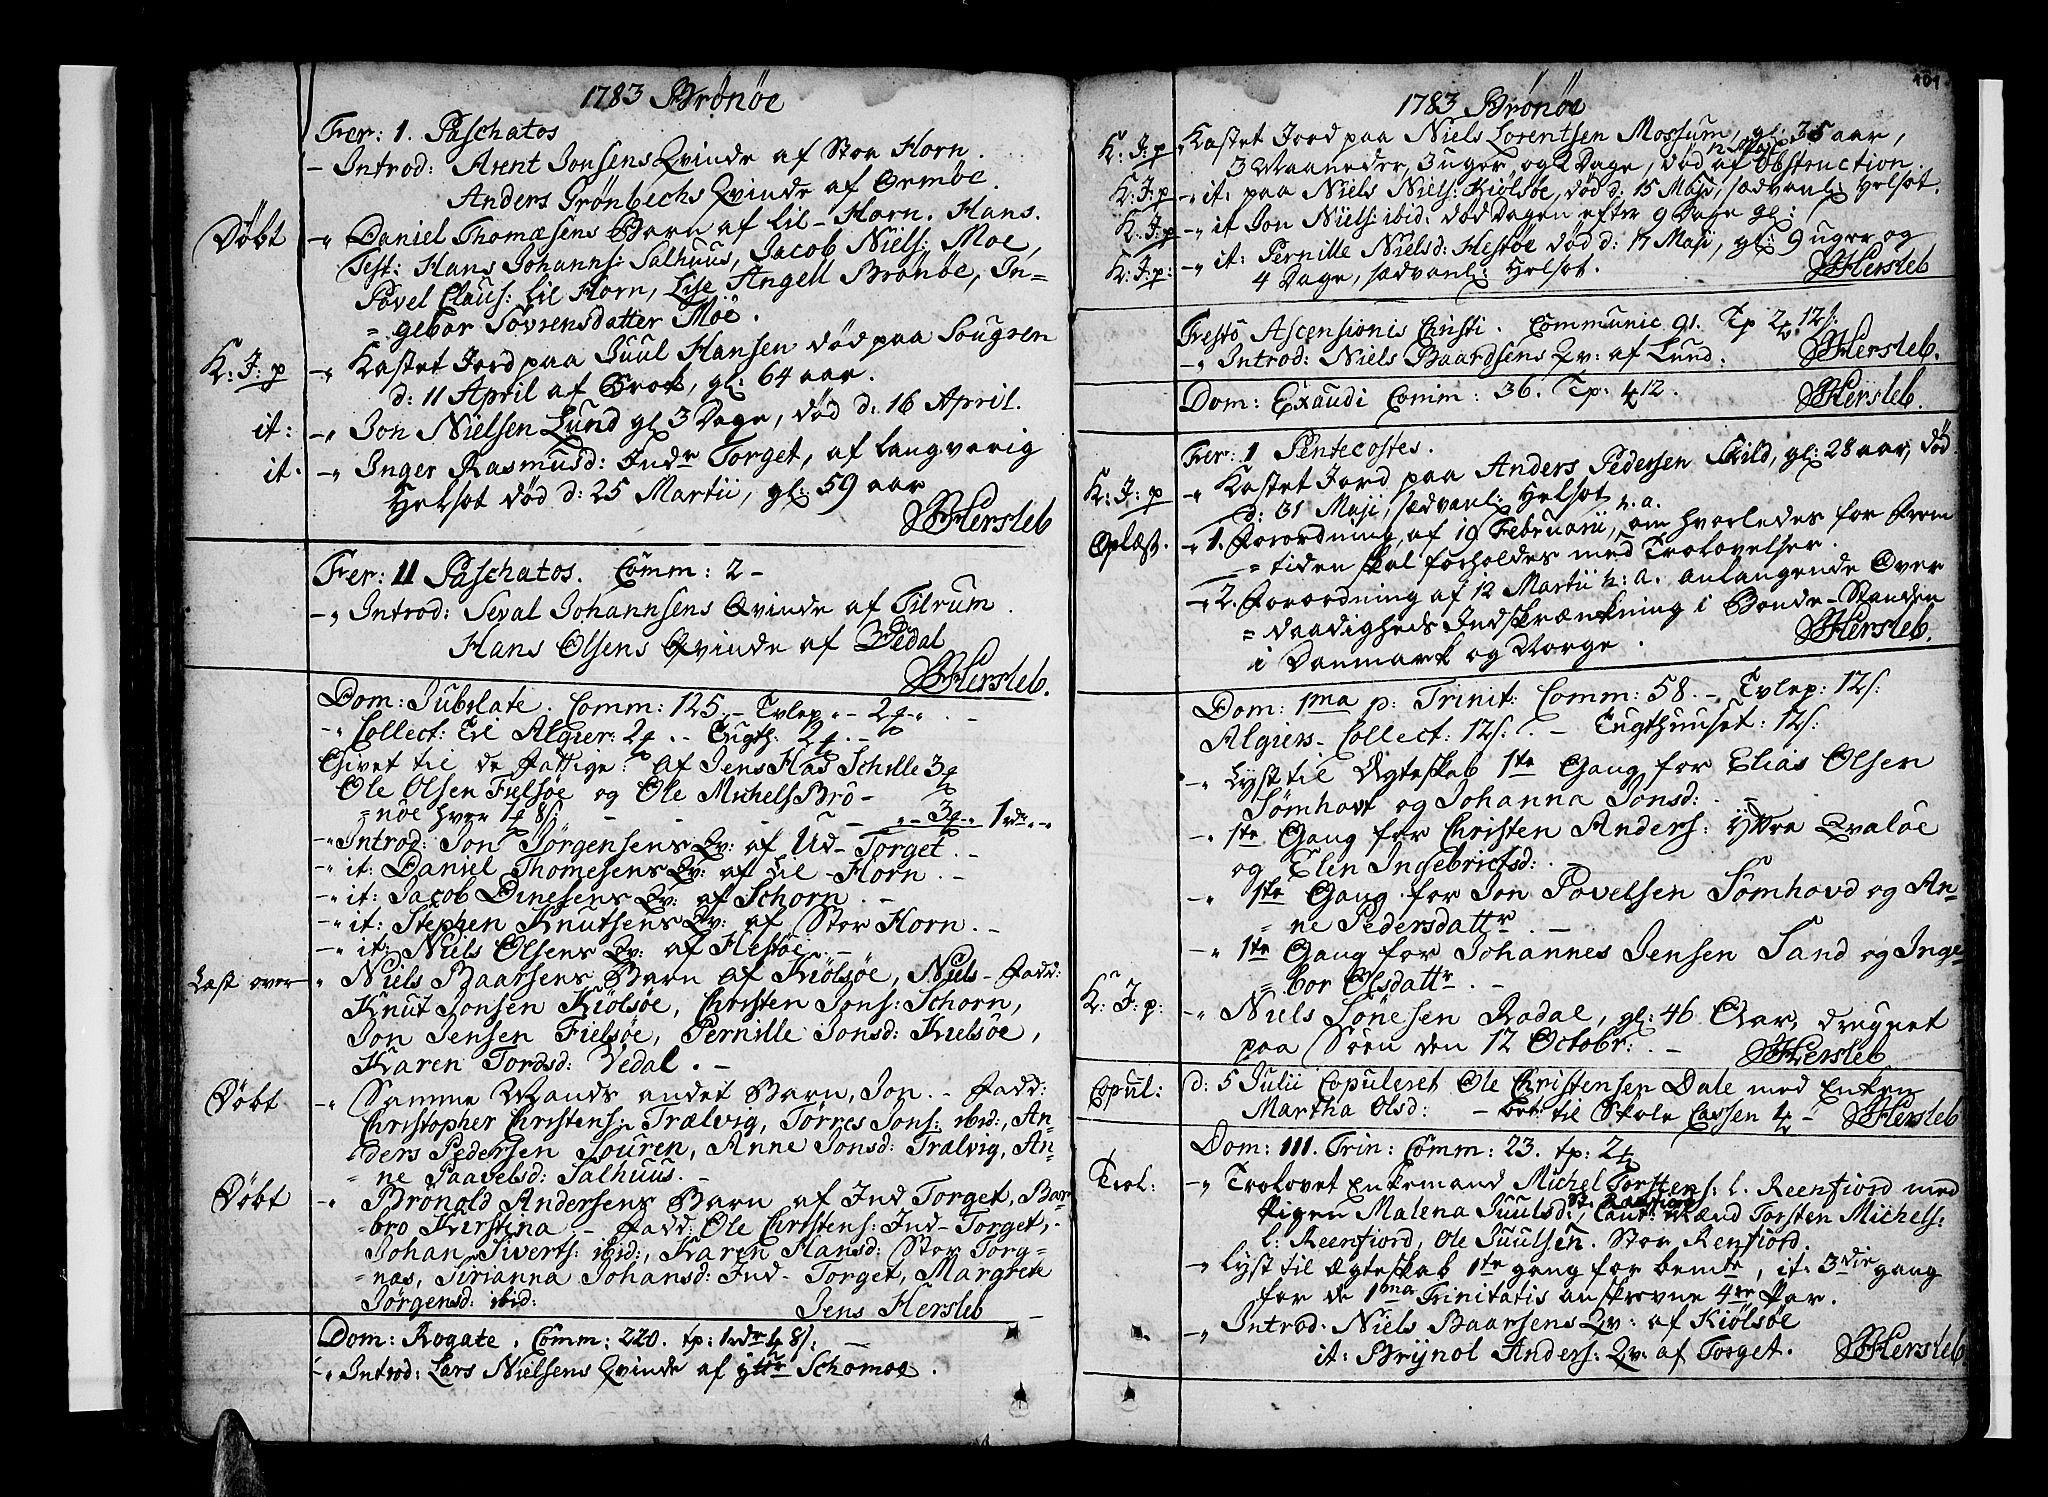 1783 Brønøe
Fer: 1. Paschatos
- Introd: Arent Jonsens Qvinde af Stor Horn.
Anders Grønbechs Qvinde af Ormøe.
Døbt -" Daniel Thomæsens Barn af Lil-Horn. Hans.
Test: Hans Johanns: Salhuus, Jacob Niels: Moe,
Povel Claus: Lil Horn, Lise Angell Brønøe, In=
=gebor Sövrensdatter Moe.
K: J: p -" Kastet Jord paa Juul Hansen død paa Sougren
d: 11 April af Brok, gl: 64 aar.
it: -" Jon Nielsen Lund gl 3 Dage, død d: 16 April.
it: -" Inger Rasmusd: Indr Torget, af langvarig
Helsot død d: 25 Martii, gl: 59 aar
JHersleb
Fer: II Paschatos. Comm: 2 -
-" Introd: Seval Johannsens Qvinde af Tilrum.
Hans Olsens Qvinde af Vedal
JHersleb.
Dom: Jubilate. Comm: 125. - Tvlep. - 2
-" Collect: til Algier: 2 . - Tugth: 2 . -
Givet til de Fattige: af Jens Has Schille 3
Ole Olsen Fielsøe og Ole Michels Brø-
=nøe hver 1 8/: - - - 3 1 rdr
-" Introd: Jon Jörgensens Qv: af Ud-Torget. -
-" it: Daniel Thomesens Qv: af Lil-Horn. -
-" it: Jacob Dinesens Qv: af Schorn. -
-" it: Stephen Knutsens Qv: af Stor Horn. -
-" it: Niels Olsens Qv: af Hestøe. -
Læst over " Niels Baarsens Barn af Kiölsøe, Niels - Fadd:
Knut Jonsen Kiölsøe, Christen Jons: Schorn,
Jon Jensen Fielsøe, Pernille Jonsd: Kielsøe,
Karen Tordsd: Vedal. -
Døbt -" Samme Mands andet Barn, Jon. - Fadd:
Christopher Christens: Trælvig, Törres Jons: ibid:, An=
=ders Pedersen Souren, Anne Jonsd: Trælvig, An=
=ne Paavelsd: Salhuus. -
Døbt -" Brønald Andersens Barn af Ind Torget, Bar
=bro Kirstina - Fadd: Ole Christens: Ind-Torget, -
Johan Siverts: ibid:, Karen Hansd: Stor Torg=
=næs, Sirianna Johansd: Ind-Torget, Margreta
Jörgensd: ibid: Jens Hersleb -
Dom: Rogate. Comm: 220. tp: 1 rdr 4 8/: -
-" Introd: Lars Nielsens Qvinde af yttre Schomoe.
101.
1783 Brønøe
K: J: p " Kastet Jord paa Niels Lorentsen Mossum, gl: 35 aar,
3 Maaneder, 3 uger, og 2 Dage, død 12 Maji af Obstruction.
K: J: p -" it: paa Niels Niels: Kiölsøe, død d: 15 Maji, sædvanl: Helsot.
K: J: p -" it Jon Niels: ibid: død Dagen efter 9 Dage gl:
K: J: p: -" it: Pernille Nielsd: Hestøe død d: 17 Maji, gl: 9 uger og
4 Dage, sædvanl: Helsot. JHersleb
Festo Ascensionis Christi. Communic 91. Tp 2 12/:
-" Introd: Niels Baardsens Qv: af Lund: JHersleb.
Dom: Exaudi Comm: 36. Tp: 4 12. JHersleb.
Fer: 1 Pentecostes.
K: J: p -" Kastet Jord paa Anders Pedersen Skild, gl: 28 aar, død
d: 31 Maji, sædvanl: Helsot
Oplæst. -" 1. Forordning, af 19 Februarii, h. a. om hvorledes for Frem
=tiden skal forholdes med Trolovelser.
- 2. Forordning af 12 Martii h: a. anlangende Over
=daadigheds Indskrænkning i Bonde-Standen
i Danmark og Norge. JHersleb.
Dom: 1ma p: Trinit: Comm: 58. - Tvlep: 12/:
Algiers- Collect: 12/: . - Tugthuuset: 12/:
-" Lyst til Ægteskab 1ste Gang for Elias Olsen
Sömhovt og Johanna Jonsd: -
-" 1ste Gang for Christen Anders: Yttre Qvaløe
og Elen Ingebrictsd: . -
-" 1ste Gang for Jon Povelsen Sömhovd og An=
=ne Pedersdattr. -
-" 1ste Gang for Johannes Jensen Sand og Inge=
=bor Olsdattr. -
K: J: p: -" Niels Sönesen Rodal, gl: 46 Aar, drugnet
paa Söen den 12 Octobr: . - JHersleb
Copul: d: 5 Julii Copuleret Ole Christensen Dale med Enken
Martha Olsd: - bet: til Skole Cassen 4 - JHersleb
Dom: III. Trin: Comm: 23. tp: 2
Trol: -" Trolovet Enkemand Michel Torstens: l. Reenfiord med
Pigen Malena Juulsd: St. Reenfiord, Caut: Mænd Torsten Michels:
l: Reenfiord, Ole Juulsen. Stor Renfiord.
-" Lyst til Ægteskab 1ste gang for bemte, it: 3die gang
for de 1ma Trinitatis anskrevne 4re Par.
-" Introd. Niels Baarsens Qv: af Kiölsøe
it: Brynol Anders: Qv: af Torget. JHersleb